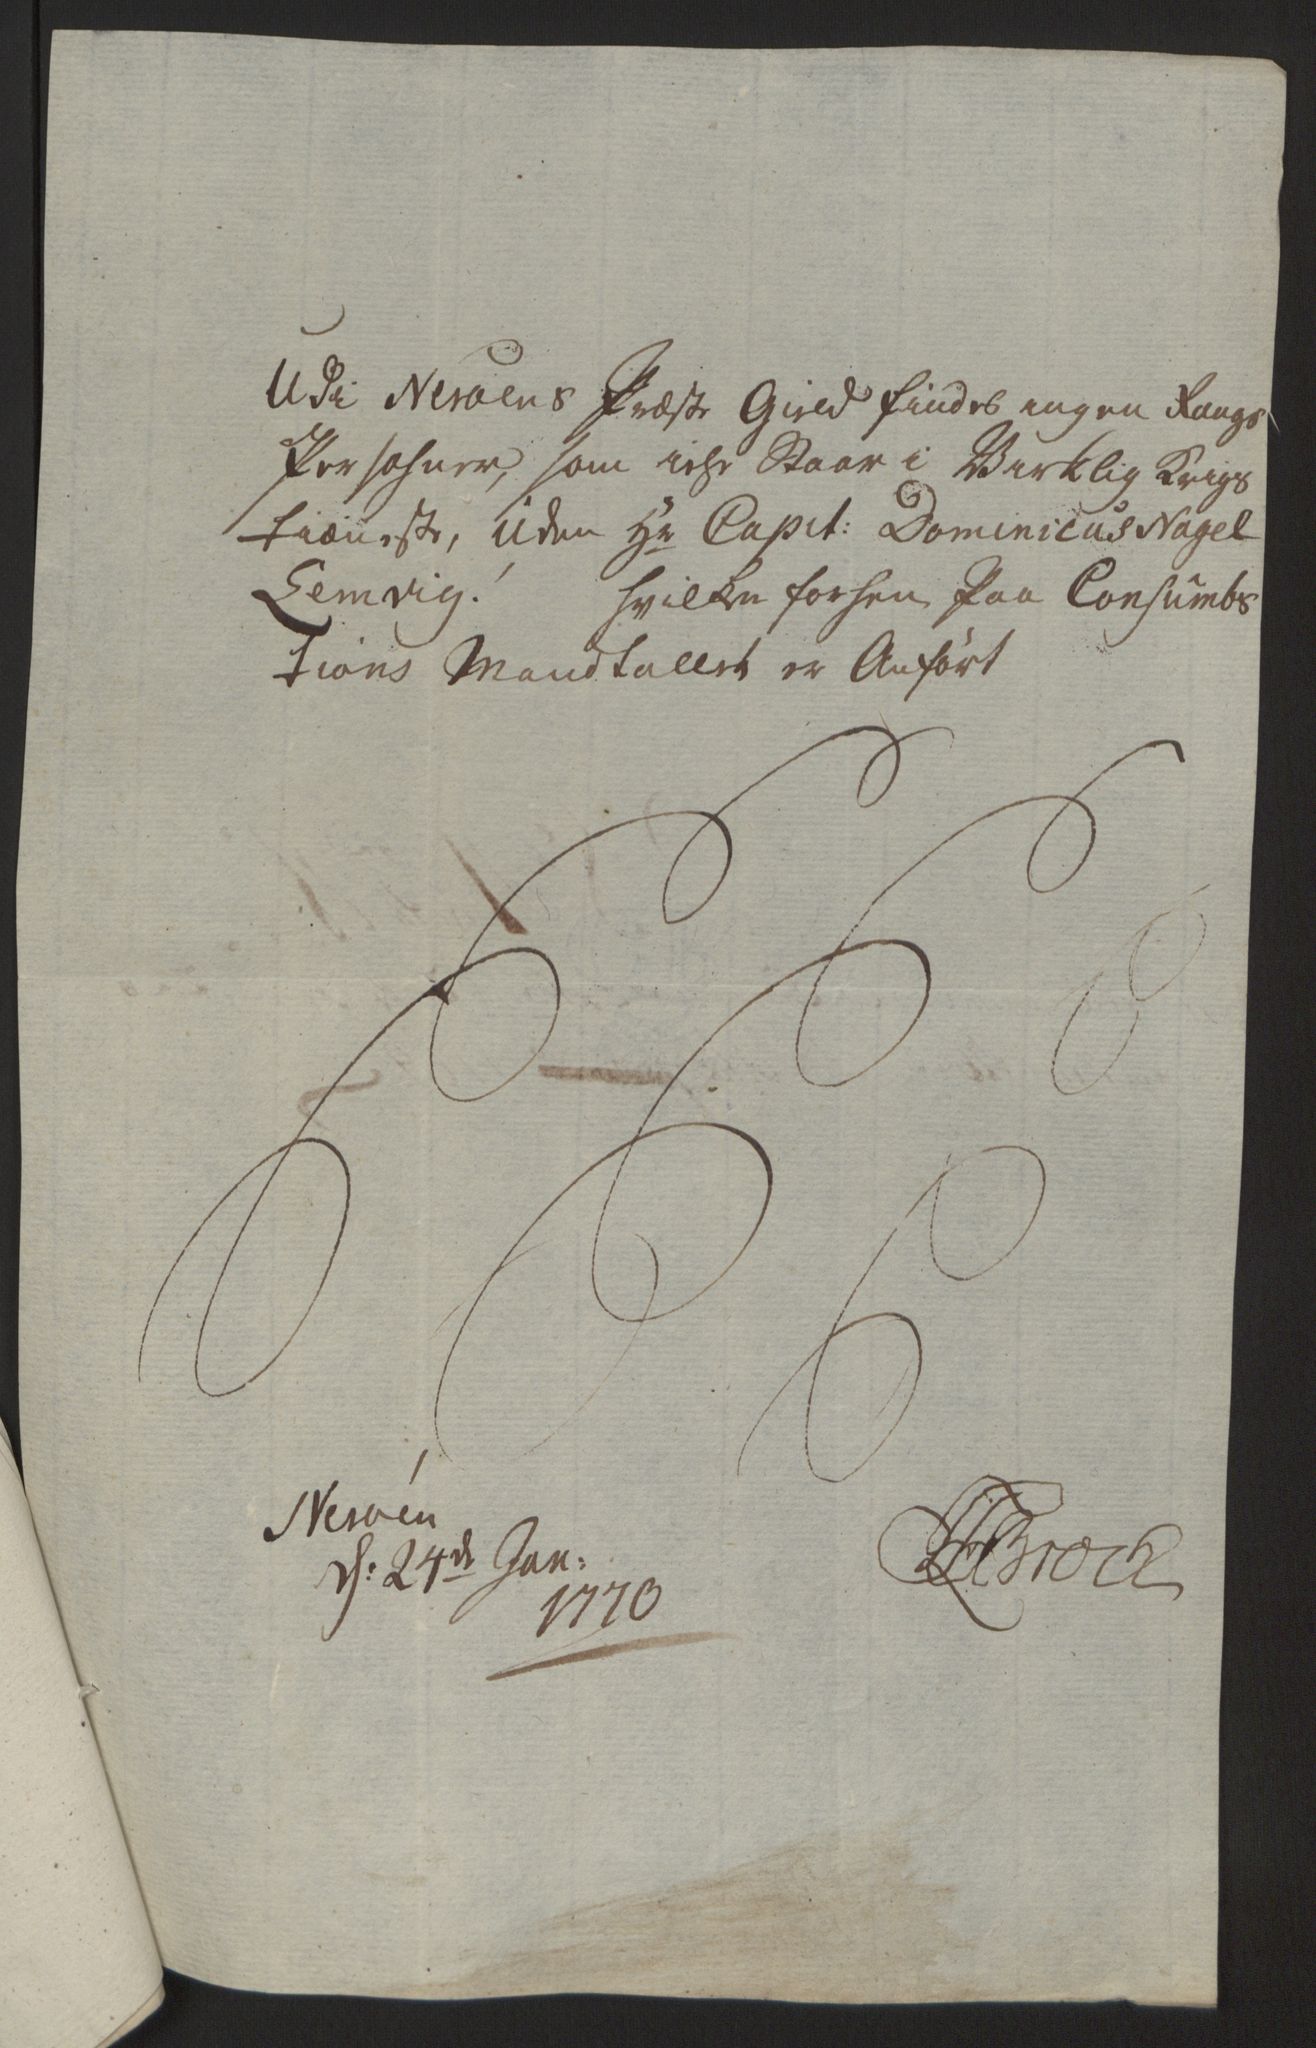 Udi Nerøens Præste Gield findes ingen Rangs
Persohner, som iche Staar i Virklig Krigs
tiæneste, Uden Hr Capit: Dominicus Nagel
Lemvig! hvilken forhen Paa Consumbs
tions Mandtallet er Anført
Nerøen
d: 24de Jan:
1770
Brock